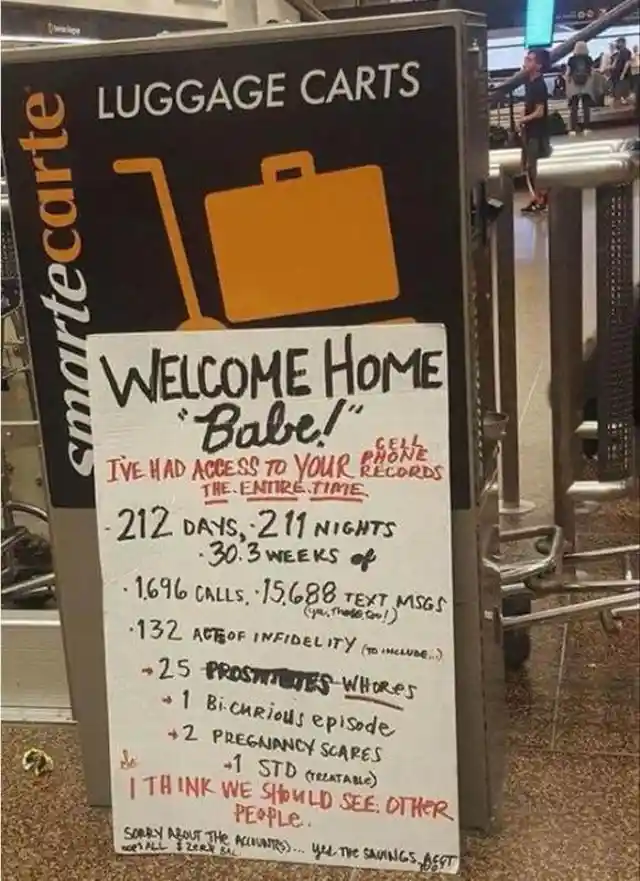 LUGGAGE CARTS
smartecarte
WELCOME HOME
"Babe!"
I'VE HAD ACCESS TO YOUR CELL PHONE RECORDS
THE ENTIRE TIME
· 212 DAYS, · 211 NIGHTS
· 30.3 WEEKS of
· 1,696 CALLS, · 15,688 TEXT MSGS
(yes, those too!)
· 132 ACTS OF INFIDELITY (TO INCLUDE...)
→ 25 PROSTITUTES WHORES
→ 1 Bi-curious episode
→ 2 PREGNANCY SCARES
→ 1 STD (TREATABLE)
So
I THINK WE SHOULD SEE OTHER
PEOPLE.
SORRY ABOUT THE ACCOUNT(S)... yes, THE SAVINGS ACCT
ALL $ ZERO BAL. TOO!